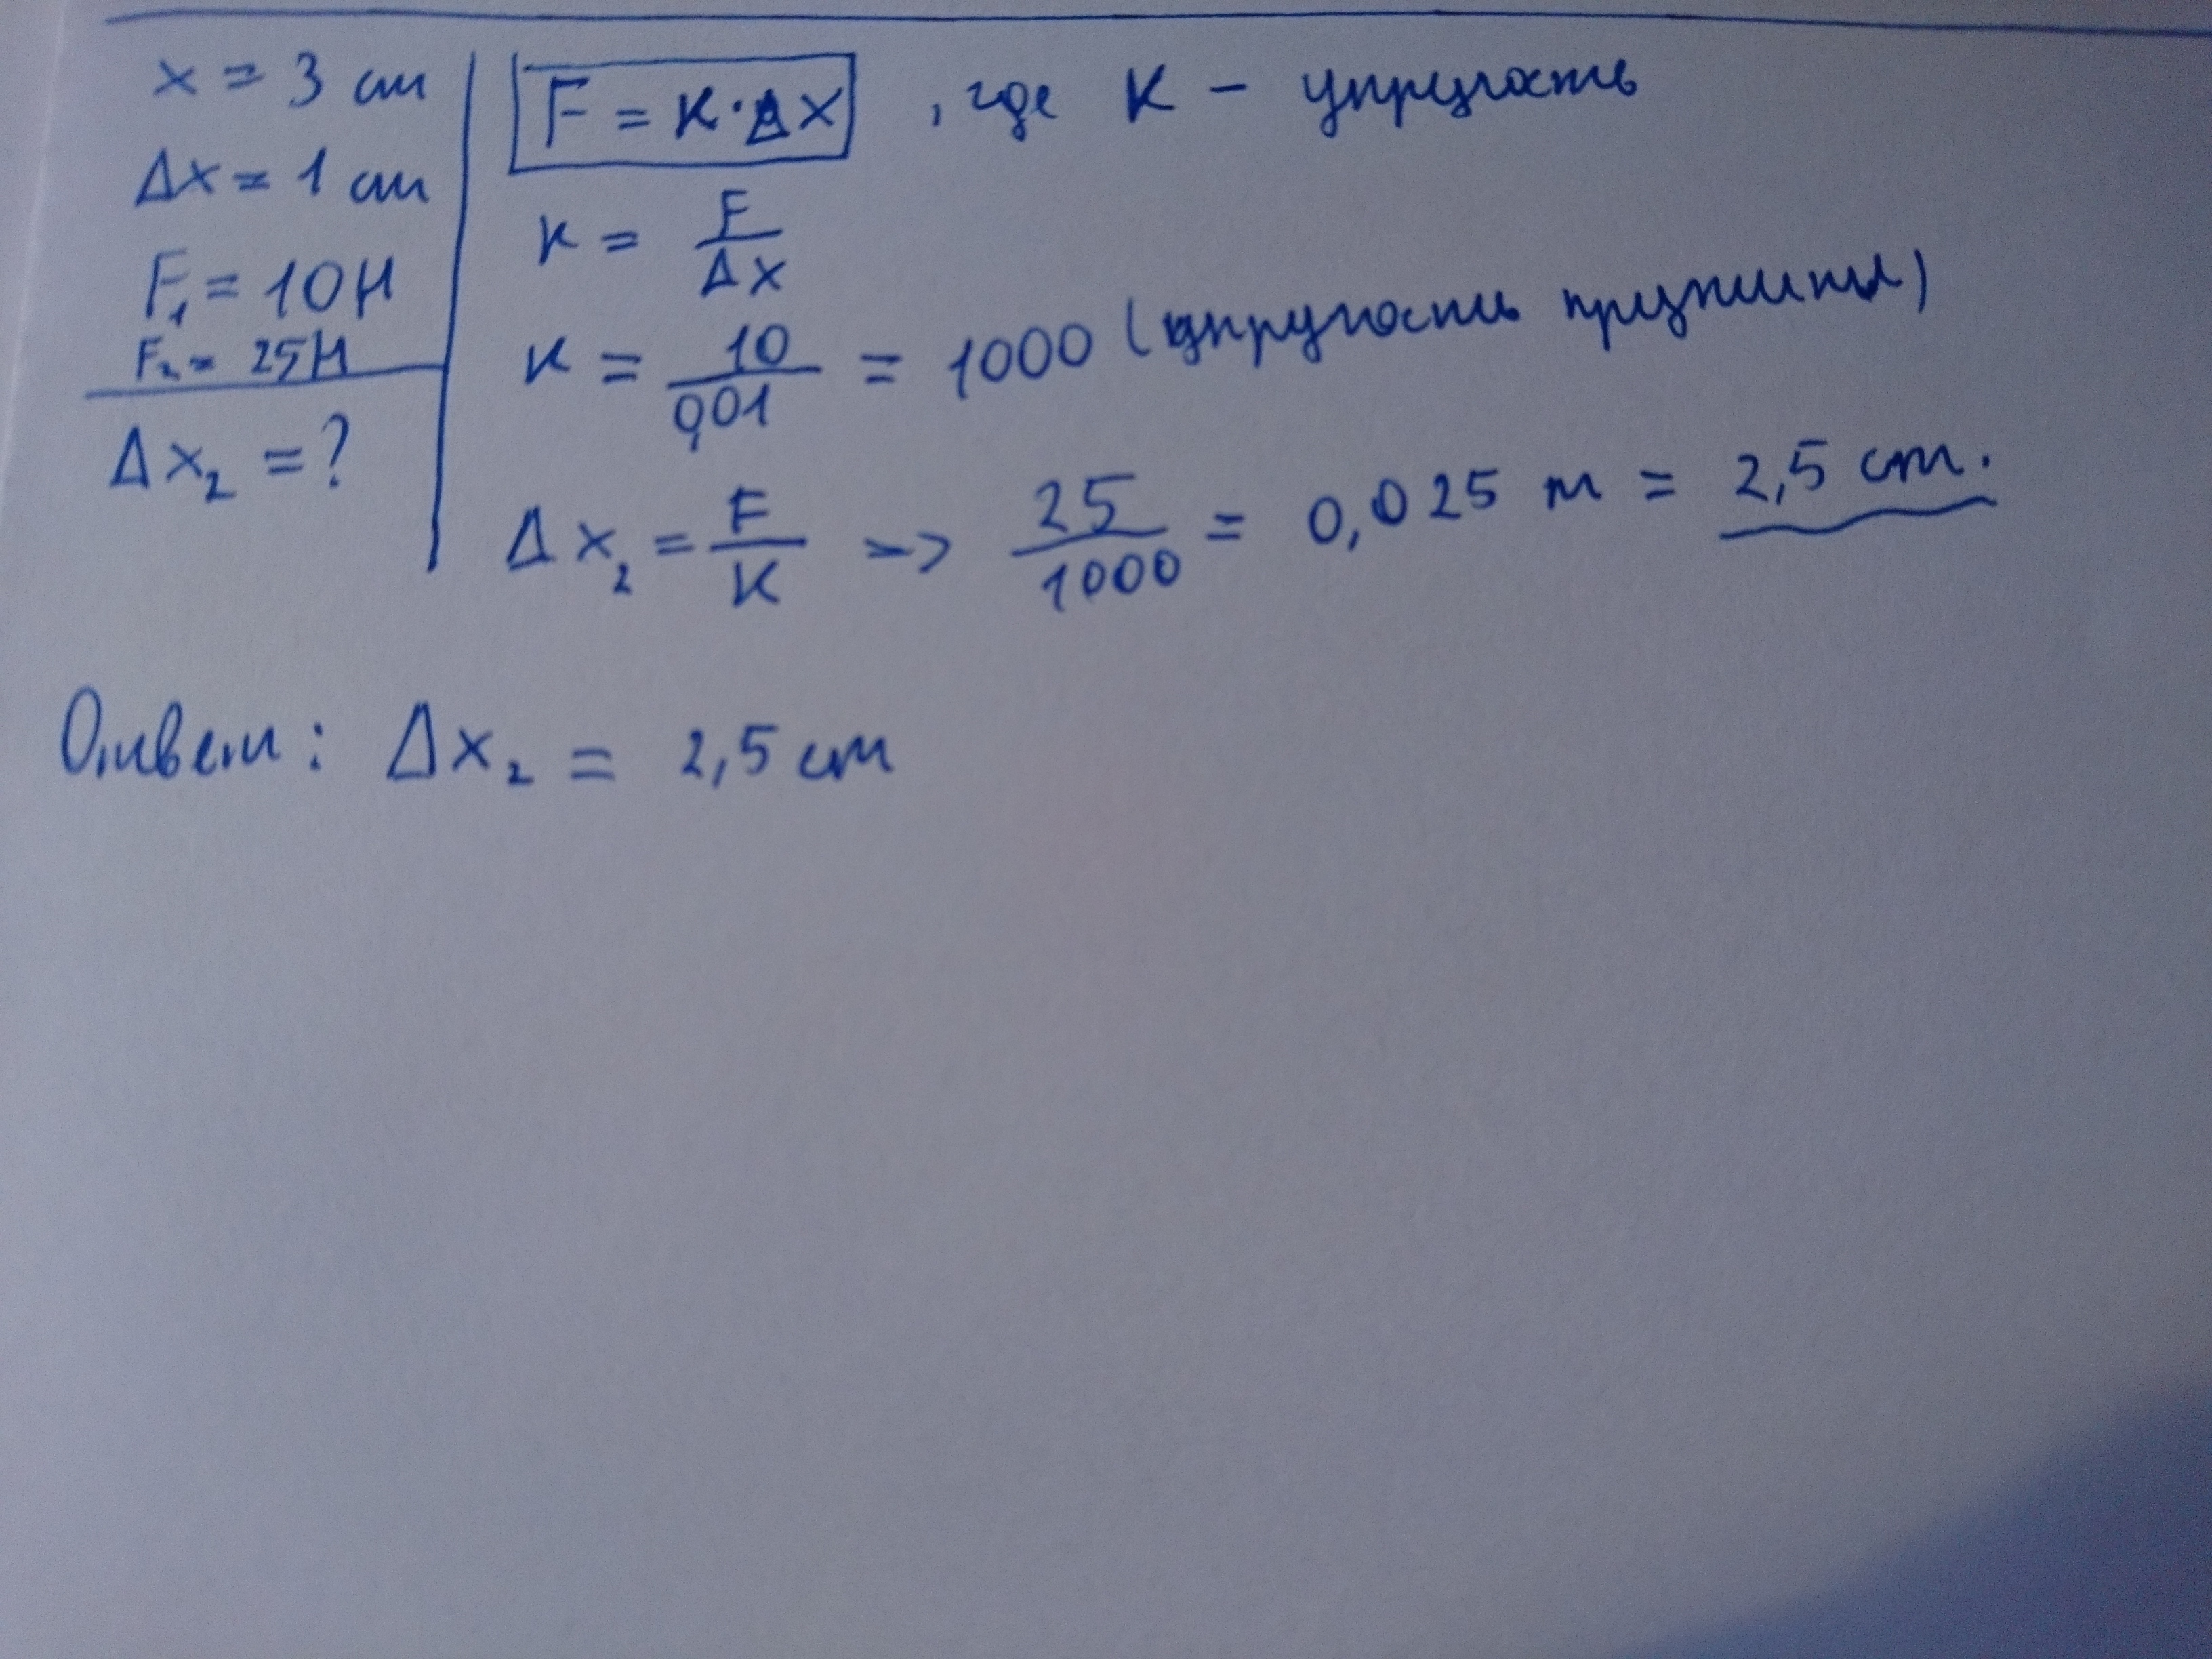 x = 3 см
Δx = 1 см
F₁ = 10 Н
F₂ = 25 Н
Δx₂ = ?
F = K·Δx , где K - упругость
K = F/Δx
K = 10/0,01 = 1000 (упругость пружины)
Δx₂ = F/K => 25/1000 = 0,025 м = 2,5 см.
Ответ: Δx₂ = 2,5 см